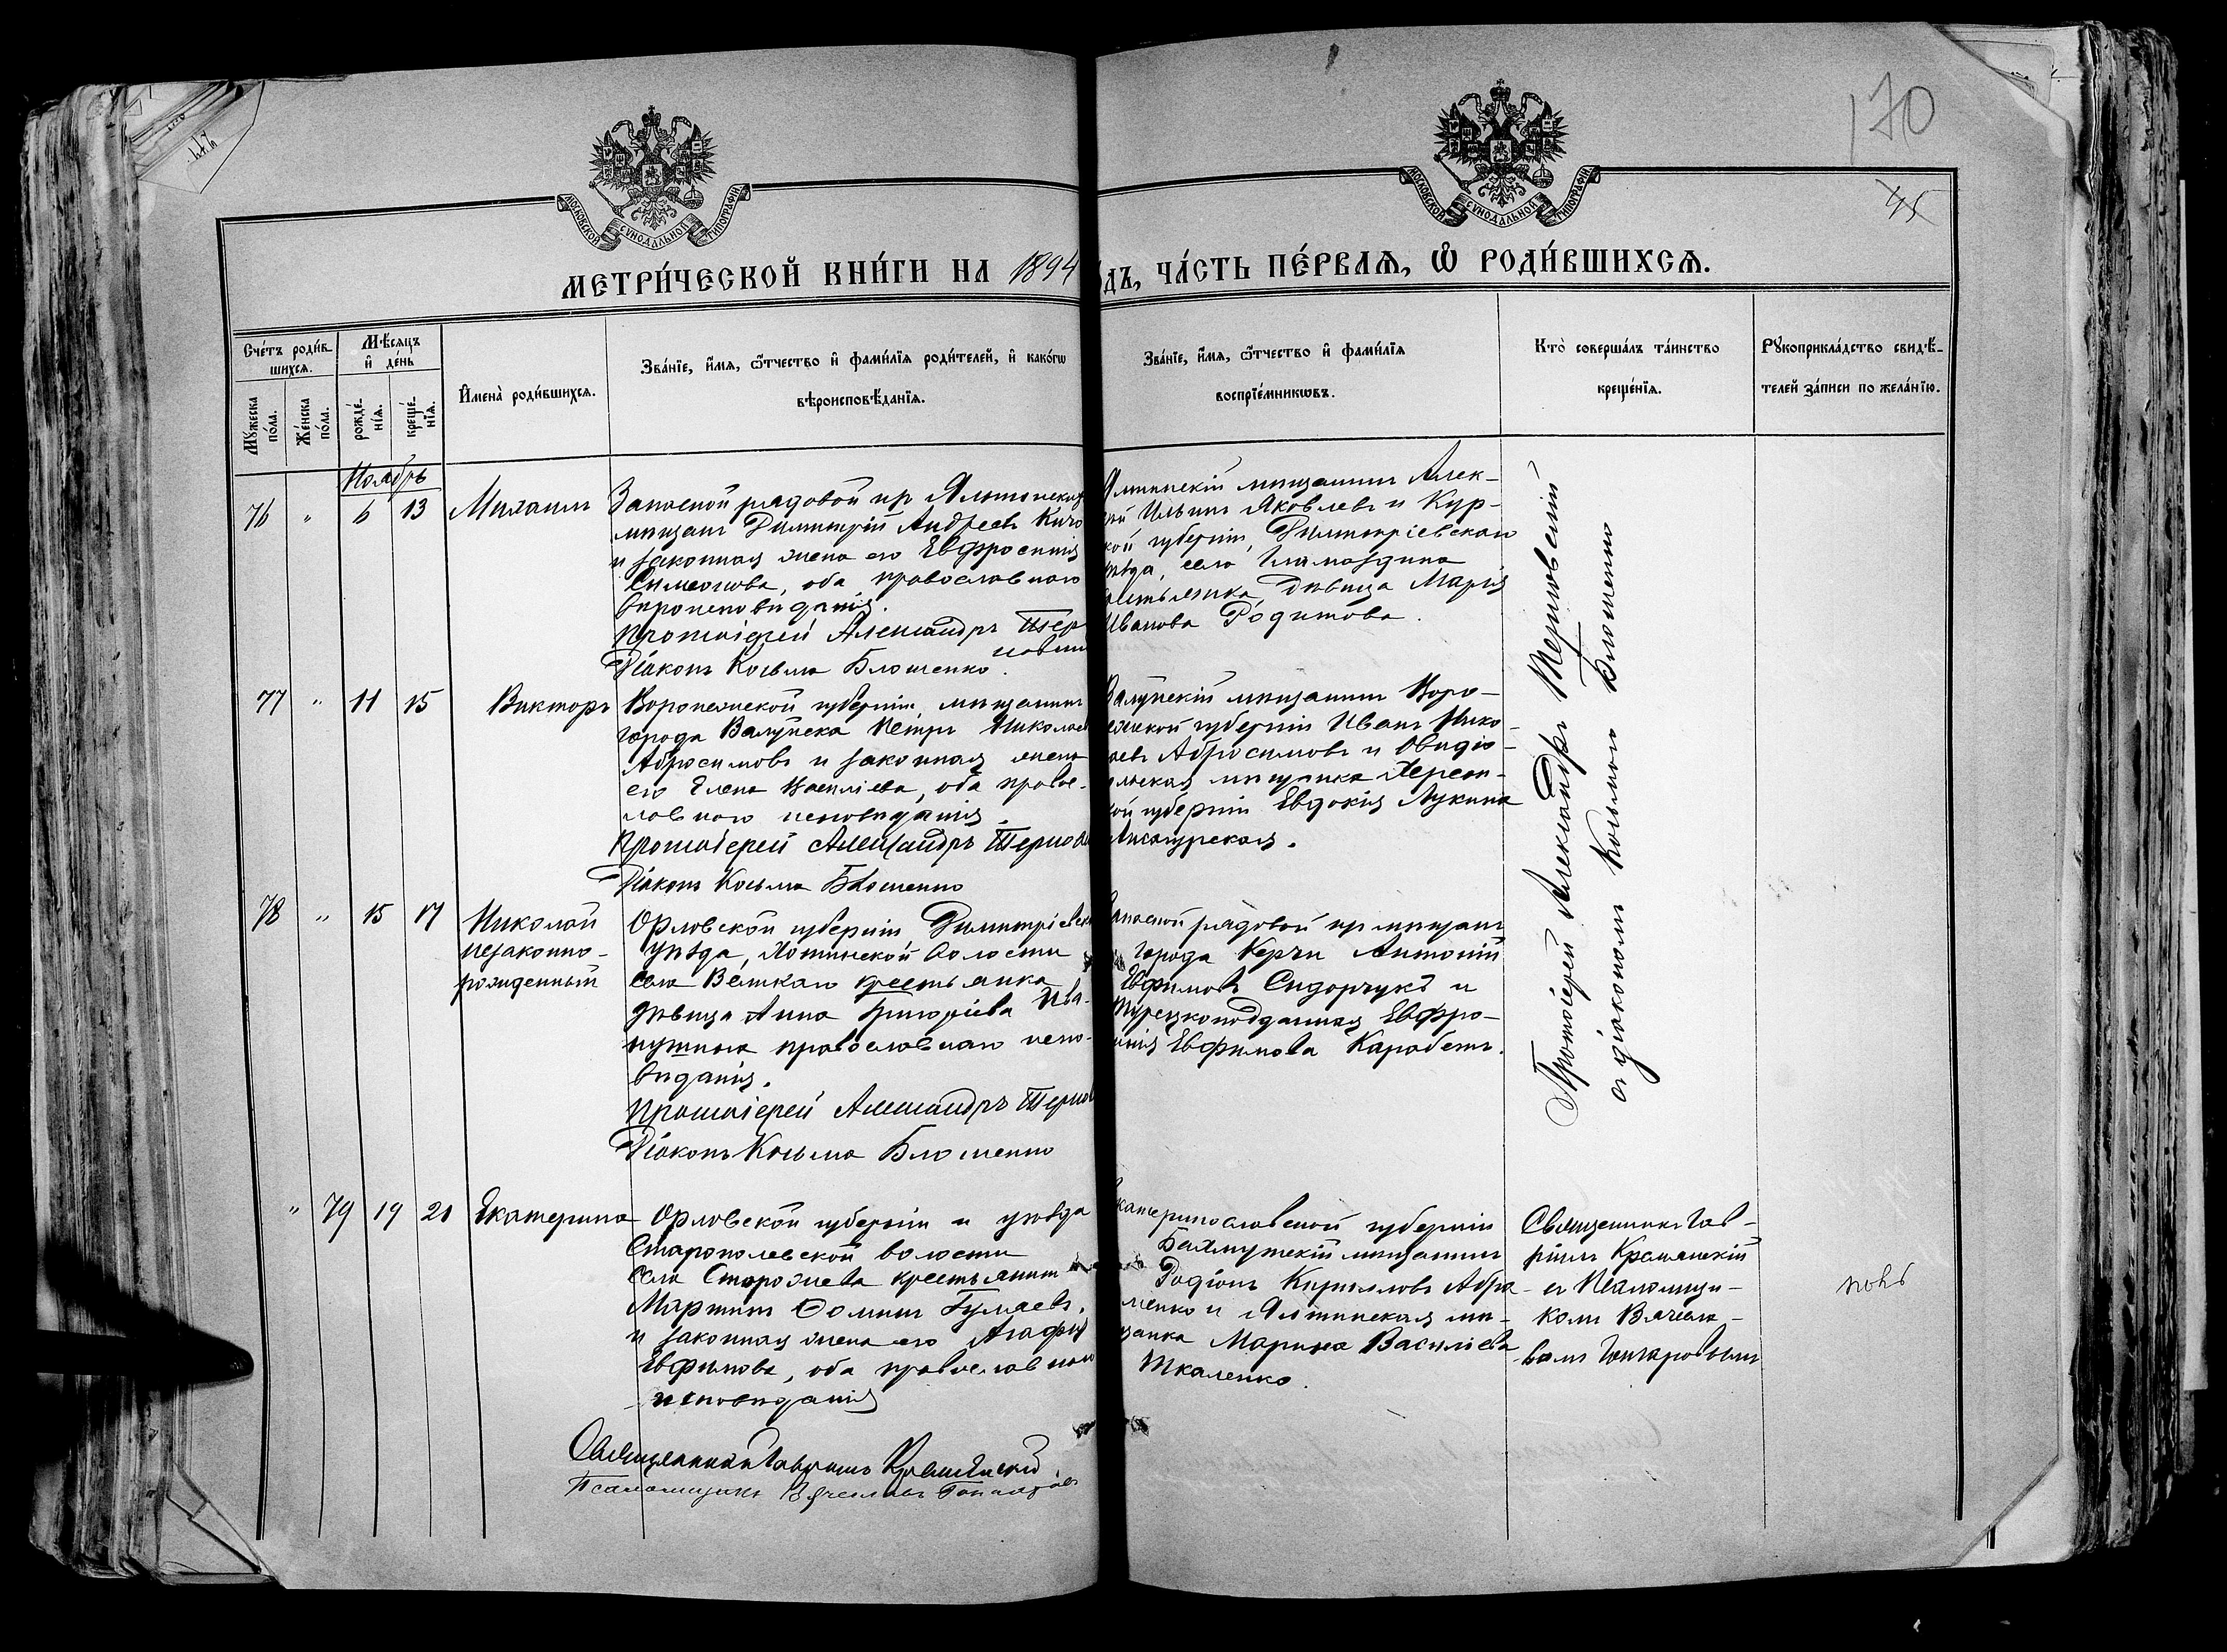 170
45
МОСКОВСКОЙ СѴНОДАЛЬНОЙ ТИПОГРАФІИ
МОСКОВСКОЙ СѴНОДАЛЬНОЙ ТИПОГРАФІИ
МЕТРИ́ЧЕСКОЙ КНИ́ГИ НА 1894
ДЪ, ЧА́СТЬ ПЕ́РВАЯ, Ѿ РОДИ́ВШИХСЯ.
Сче́тъ роди́в-
шихся.
Мѣ́сяцъ
и́ де́нь
Мꙋ́жеска
по́ла.
Же́нска
по́ла.
рожде́-
нїя.
креще́-
нїя.
И҆мена̀ роди́вшихся.
Зва́нїе, и҆́мя, ѻ҆́тчество и҆ фами́лїя роди́телей, и҆ како́гѡ
вѣроисповѣ́данїя.
Зва́нїе, и҆́мя, ѻ҆́тчество и҆ фами́лїя
воспрїе́мникѡвъ.
Кто̀ соверша́лъ та́инство
креще́нїя.
Рꙋкоприкла́дство свидѣ́-
телей за́писи по жела́нїю.
Ноябрь
76 " 6 13 Михаилъ
Запасной рядовой из Ялтинских
мѣщанъ Димитрій Андреевъ
и законная жена его Евфросинія
Симеонова, оба православнаго
вѣроисповѣданія.
Протоіерей Александръ Тер
новскій
Діаконъ Косьма Блошенко.
Ялтинскій мѣщанинъ Алек-
сѣй Ильинъ Яковлевъ и Кур-
ской губерніи, Димитріевскаго
уѣзда, села
крестьянка, дѣвица Марія
Иванова Родитова.
Протоіерей Александръ Терновскій
съ діакономъ Косьмою Блошенко
77 " 11 15 Викторъ
Воронежской губерніи, мѣщанинъ
города Валуйска Петръ Николаев
Абросимовъ и законная жена
его Елена Василіева, оба правос-
лавнаго исповѣданія.
Протоіерей Александръ Тернов
Діаконъ Косьма Блошенко
Валуйскій мѣщанинъ Воро-
нежской губерніи Иванъ Нико-
лаевъ Абросимовъ и Овидіо-
польская мѣщанка Херсон-
ской губерніи Евдокія Лукина
78 " 15 17 Николай
незаконно-
рожденный
Орловской губерніи Димитріевск
уѣзда, волости
села крестьянка
дѣвица Анна Григоріева
православнаго испо-
вѣданія.
Протоіерей Александръ Тернов
Діаконъ Косьма Блошенко
Запасной рядовой из мѣщанъ
города Керчи Антоній
Евфимовъ Сидорчукъ и
Турецкоподданная Евфро-
синія Евфимова Карабетъ.
" 79 19 21 Екатерина
Орловской губерніи и уѣзда
Старопольской волости
села Сторожева крестьянинъ
Мартинъ Ѳоминъ Гулаевъ,
и законная жена его Агафія
Евфимова, оба православнаго
исповѣданія
Священникъ Гавріилъ Краманскій
Псаломщикъ Вячеславъ Гончаровъ
Екатеринославской губерніи
Бахмутскій мѣщанинъ
Родіонъ Кирилловъ Абра-
менко и Ялтинская мѣ-
щанка Марина Василіева
Ткаленко.
Священникъ Гав-
ріилъ Краманскій
съ Псаломщи-
комъ Вячесла-
вомъ Гончаровымъ